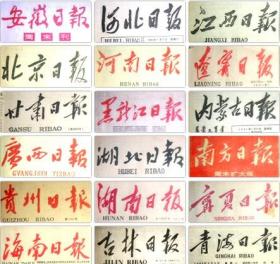 安徽日報
周末刊
河北日報
HEBEI RIBAO
江西日報
JIANGXI RIBAO
北京日報
河南日報
HENAN RIBAO
遼寧日報
LIAONING RIBAO
甘肃日報
GANSU RIBAO
黑龙江日報
内蒙古日報
廣西日報
GVANGJSIH YIZBAU
湖北日報
HUBEI RIBAO
南方日報
周末扩大版
貴州日報
GUIZHOU RIBAO
湖南日報
HUNAN RIBAO
寧夏日報
NINGXIA RIBAO
海南日報
吉林日報
JILIN RIBAO
青海日報
QINGHAI RIBAO